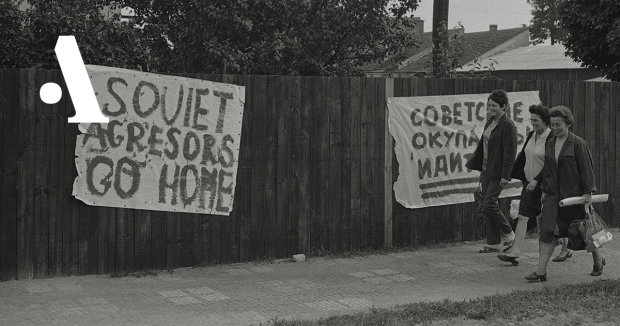 A
SOVIET
AGRESORS
GO HOME
СОВЕТС Е
ОКУПА Ы
ИДИТ